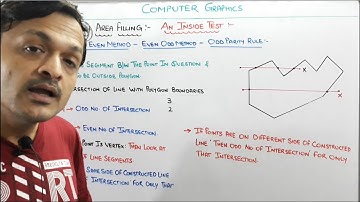 Computer Graphics
Area Filling:- An Inside Test:-
Even Method - Even Odd Method - Odd Parity Rule:-
Segment B/w The Point In Question &
To Be Outside Polygon.
section Of Line With Polygon Boundaries
3
Odd No. Of Intersection 2
Even No. Of Intersection
Point Is Vertex: Then Look At
Of Line Segments
Same Side Of Constructed Line
Intersection For Only That
x
x
→ If Points Are On Different Side Of Constructed
Line Then Odd No Of Intersection For Only
That Intersection.